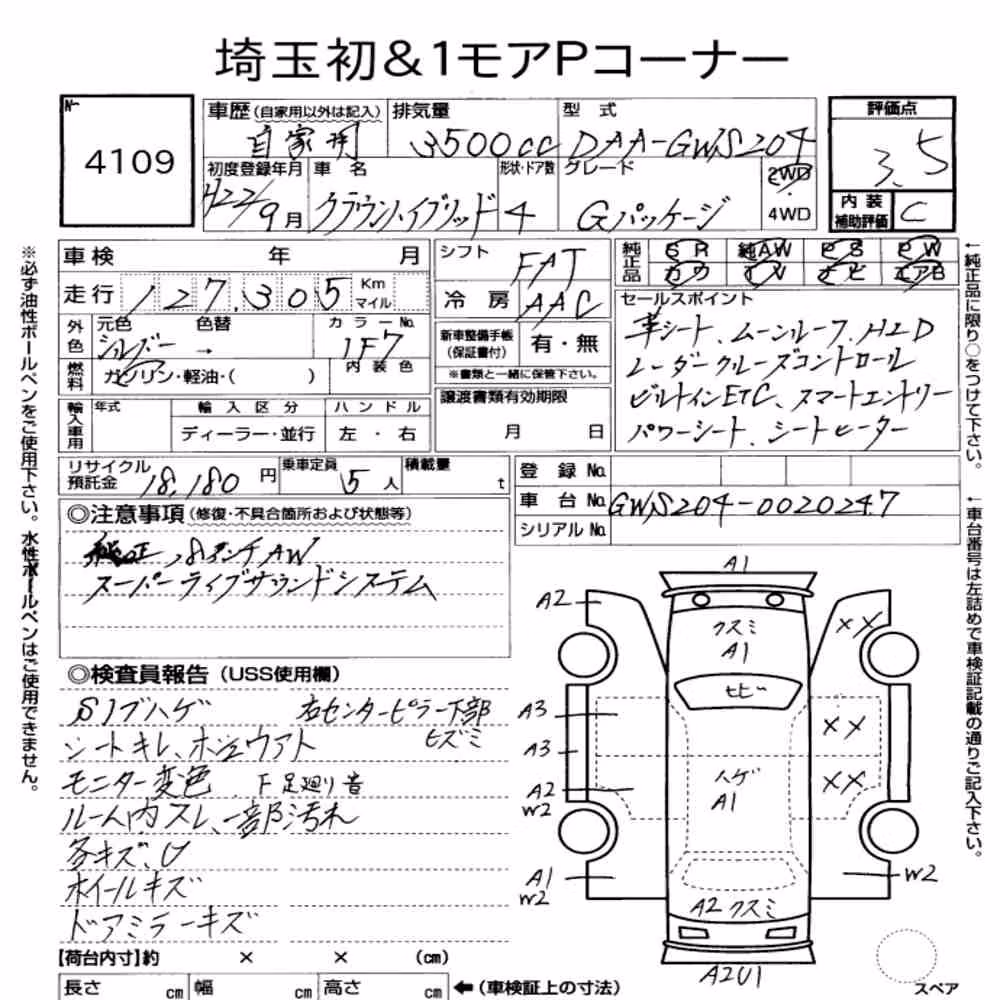 埼玉初&1モアPコーナー
4109
車歴(自家用以外は記入) 自家用
排気量 3500cc
型式 DAA-GWS204
評価点 3.5
内装補助評価 C
初度登録年月 H22/9月
車名 クラウンハイブリッド
形状・ドア数 4
グレード Gパッケージ
2WD・4WD
※必ず油性ボールペンをご使用下さい。水性ボールペンはご使用できません。
車検 年 月
走行 127,305 Km マイル
外色 元色 シルバー 色替 →
カラーNo. 1F7
燃料 ガソリン・軽油・( ) 内装色
輸入車用 年式 輸入区分 ディーラー・並行 ハンドル 左・右
シフト FAT
冷房 AAC
新車整備手帳(保証書付) 有・無
※書類と一緒に保管下さい。
譲渡書類有効期限 月 日
純正品 SR 純AW PS PW
カワ TV ナビ エアB
セールスポイント
革シート、ムーンルーフ、HID
レーダークルーズコントロール
ビルトインETC、スマートエントリー
パワーシート、シートヒーター
←純正品に限り○をつけて下さい。
リサイクル預託金 18,180円
乗車定員 5人
積載量 t
登録No.
車台No. GWS204-0020247
シリアルNo.
←車台番号は左詰めで車検証記載の通りご記入下さい。
◎注意事項(修復・不具合箇所および状態等)
純正18インチAW
スーパーライブサウンドシステム
◎検査員報告(USS使用欄)
S1ブハゲ 右センターピラー下部
シートキレ、 ヒズミ
モニター変色 F足廻り音
ルーム内スレ、一部汚れ
各キズ、U
ホイールキズ
ドアミラーキズ
A1
A2
クスミ
A1
××
トビ
A3
××
A3
ハゲ
A1
××
A2
W2
A1
W2
W2
A2クスミ
A2U1
スペア
【荷台内寸】約 × × (cm)
長さ cm 幅 cm 高さ cm ←(車検証上の寸法)